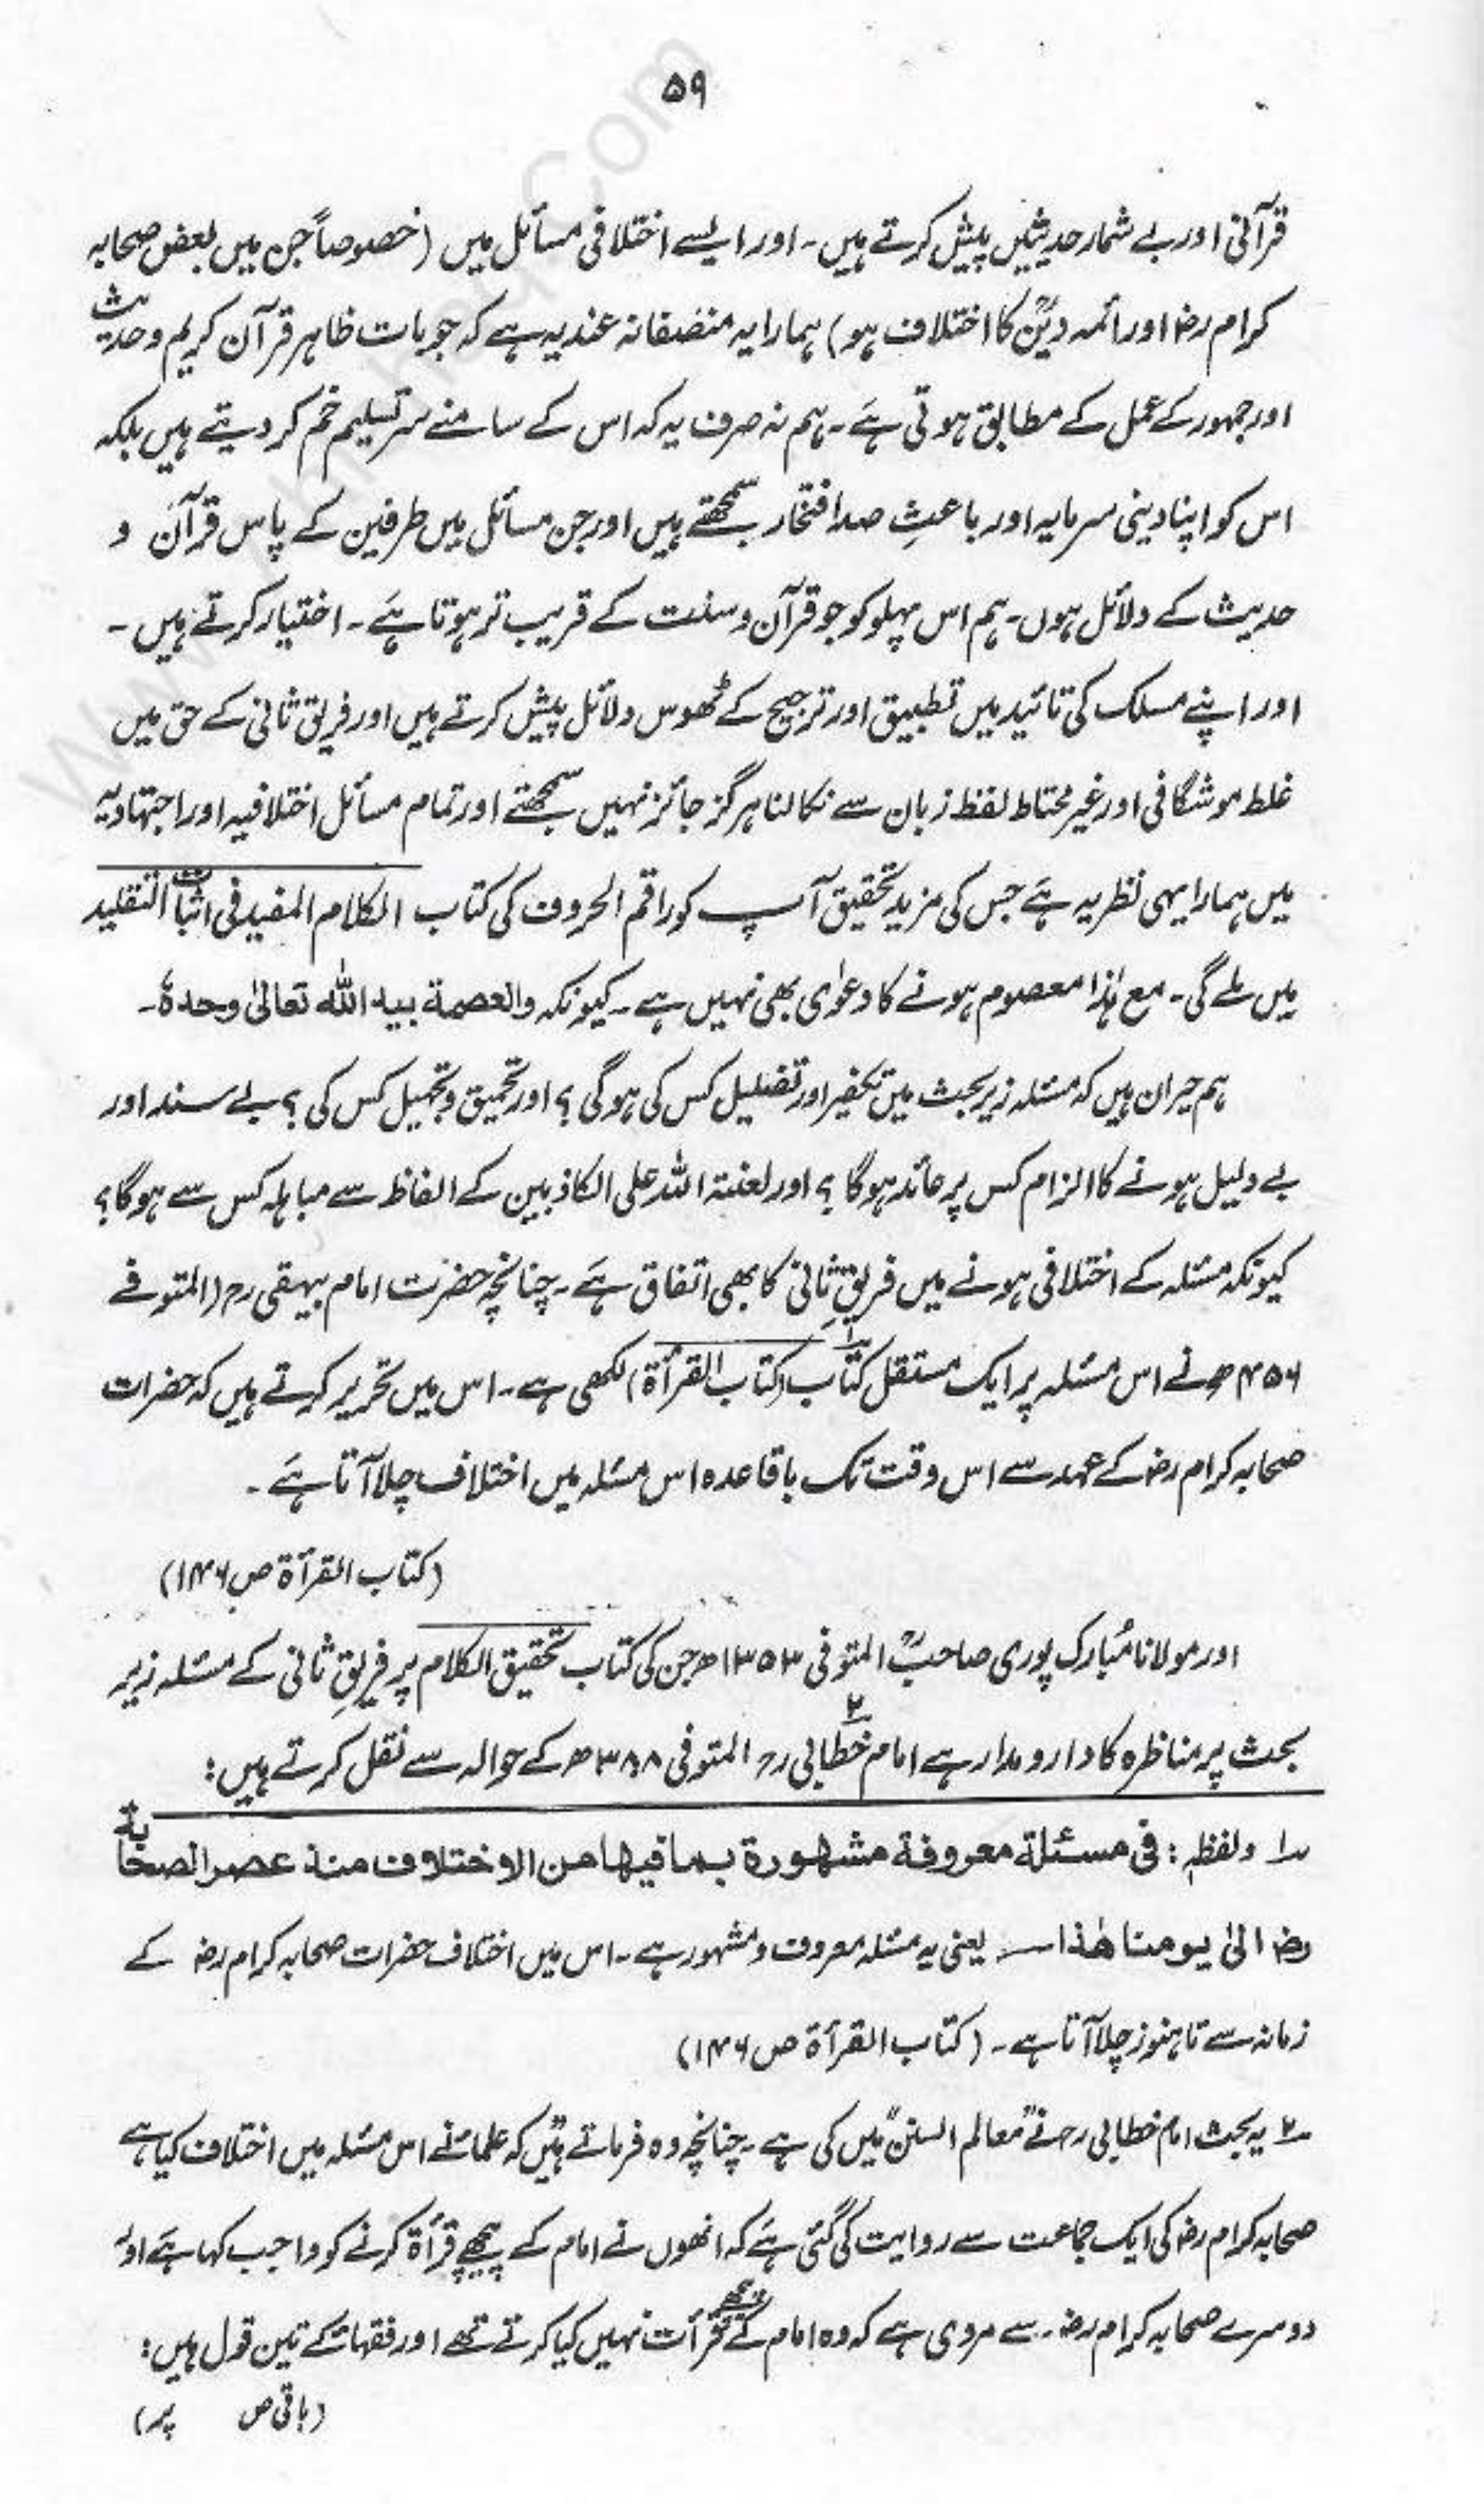 ۵۹
قرآنی اور بے شمار حدیثیں پیش کرتے ہیں۔ اور ایسے اختلافی مسائل میں (خصوصاً جن میں بعض صحابہ
کرام رضؓ اور ائمہ دینؒ کا اختلاف ہو) ہمارا یہ منصفانہ عندیہ ہے کہ جو بات ظاہر قرآن کریم و حدیث
اور جمہور کے عمل کے مطابق ہوتی ہے۔ ہم نہ صرف یہ کہ اس کے سامنے سر تسلیم خم کر دیتے ہیں بلکہ
اس کو اپنا دینی سرمایہ اور باعثِ صد افتخار سمجھتے ہیں اور جن مسائل میں طرفین کے پاس قرآن و
حدیث کے دلائل ہوں۔ ہم اس پہلو کو جو قرآن و سنت کے قریب تر ہوتا ہے۔ اختیار کرتے ہیں۔
اور اپنے مسلک کی تائید میں تطبیق اور ترجیح کے ٹھوس دلائل پیش کرتے ہیں اور فریق ثانی کے حق میں
غلط موشگافی اور غیر محتاط لفظ زبان سے نکالنا ہرگز جائز نہیں سمجھتے اور تمام مسائل اختلافیہ اور اجتہادیہ
میں ہمارا یہی نظریہ ہے جس کی مزید تحقیق آپ کو راقم الحروف کی کتاب الکلام المفید فی اثبات التقلید
میں ملے گی۔ مع ہٰذا معصوم ہونے کا دعوٰی بھی نہیں ہے۔ کیونکہ والعصمة بید اللّٰه تعالیٰ وحدهٗ۔
ہم حیران ہیں کہ مسئلہ زیر بحث میں تکفیر اور تضلیل کس کی ہوگی؟ اور تحمیق و تجہیل کس کی؟ بے سند اور
بے دلیل ہونے کا الزام کس پر عائد ہوگا؟ اور لعنۃ اللہ علی الکاذبین کے الفاظ سے مباہلہ کس سے ہوگا؟
کیونکہ مسئلہ کے اختلافی ہونے میں فریقِ ثانی کا بھی اتفاق ہے۔ چنانچہ حضرت امام بیہقی رح (المتوفے
۴۵۶ھ نے اس مسئلہ پر ایک مستقل کتاب۱ (کتاب القرأة) لکھی ہے۔ اس میں تحریر کرتے ہیں کہ حضرات
صحابہ کرام رضؓ کے عہد سے اس وقت تک باقاعدہ اس مسئلہ میں اختلاف چلا آتا ہے۔
(کتاب القرأة ص۱۴۶)
اور مولانا مُبارک پوری صاحبؒ المتوفی ۱۳۵۳ھ جن کی کتاب تحقیق الکلام پر فریقِ ثانی کے مسئلہ زیر
بحث پر مناظرہ کا دارو مدار ہے امام خطابی۲ رح المتوفی ۳۸۸ھ کے حوالہ سے نقل کرتے ہیں:
۱ ولفظہ: فی مسئلة معروفة مشهورة بما فیها من الاختلاف منذ عصر الصحابة
رضؓ الیٰ یومنا هٰذا — یعنی یہ مسئلہ معروف و مشہور ہے۔ اس میں اختلاف حضرات صحابہ کرام رضؓ کے
زمانہ سے تا ہنوز چلا آتا ہے۔ (کتاب القرأة ص۱۴۶)
۲ یہ بحث امام خطابی رح نے ”معالم السنن“ میں کی ہے۔ چنانچہ وہ فرماتے ہیں کہ علماء نے اس مسئلہ میں اختلاف کیا ہے
صحابہ کرام رضؓ کی ایک جماعت سے روایت کی گئی ہے کہ انھوں نے امام کے پیچھے قرأة کرنے کو واجب کہا ہے اور
دوسرے صحابہ کرام رضؓ۔ سے مروی ہے کہ وہ امام کے پیچھے قرأت نہیں کیا کرتے تھے اور فقہاء کے تین قول ہیں:
(باقی ص پر)